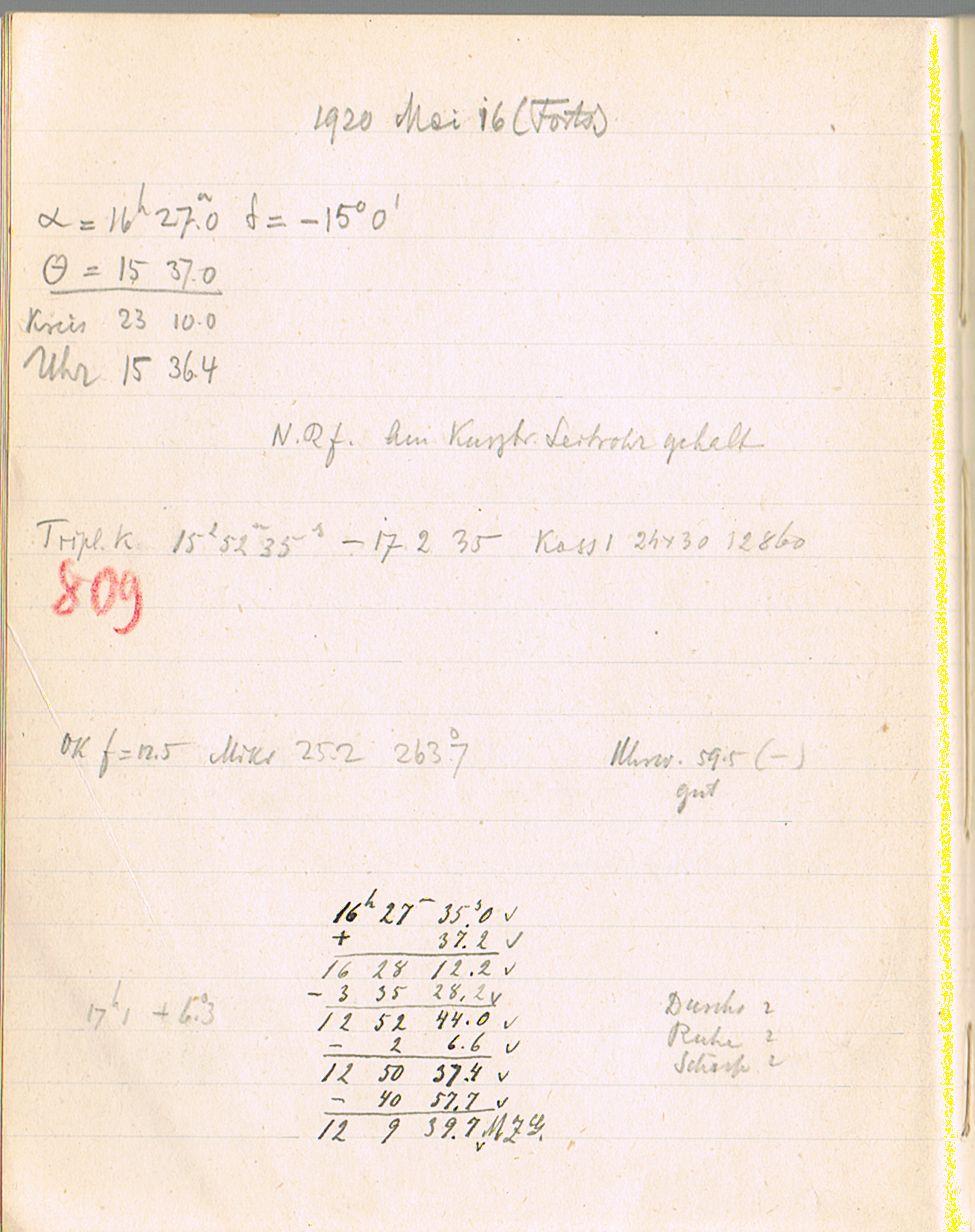 1920 Mai 16 (Forts)
α = 16ʰ 27ᵐ.0 δ = -15° 0'
Θ = 15 37.0
Kreis 23 10.0
Uhr 15 36.4
N.Rf. am Kurzbr. Leitrohr gehalt
Tripl. K 15ʰ 52ᵐ 35ˢ -17 2 35 Kass 1 24x30 12860
809
OK f=12.5 Mikr 25.2 263°.7 Uhrw. 59.5 (-)
gut
16ʰ 27ᵐ 35ˢ.0 ✓
+ 37.2 ✓
16 28 12.2 ✓
- 3 35 28.2 ✓
17ʰ1 + 6°.3 12 52 44.0 ✓ Durchs 2
- 2 6.6 ✓ Ruhe 2
12 50 37.4 ✓ Schärfe 2
- 40 57.7 ✓
12 9 39.7 ✓ MZG.